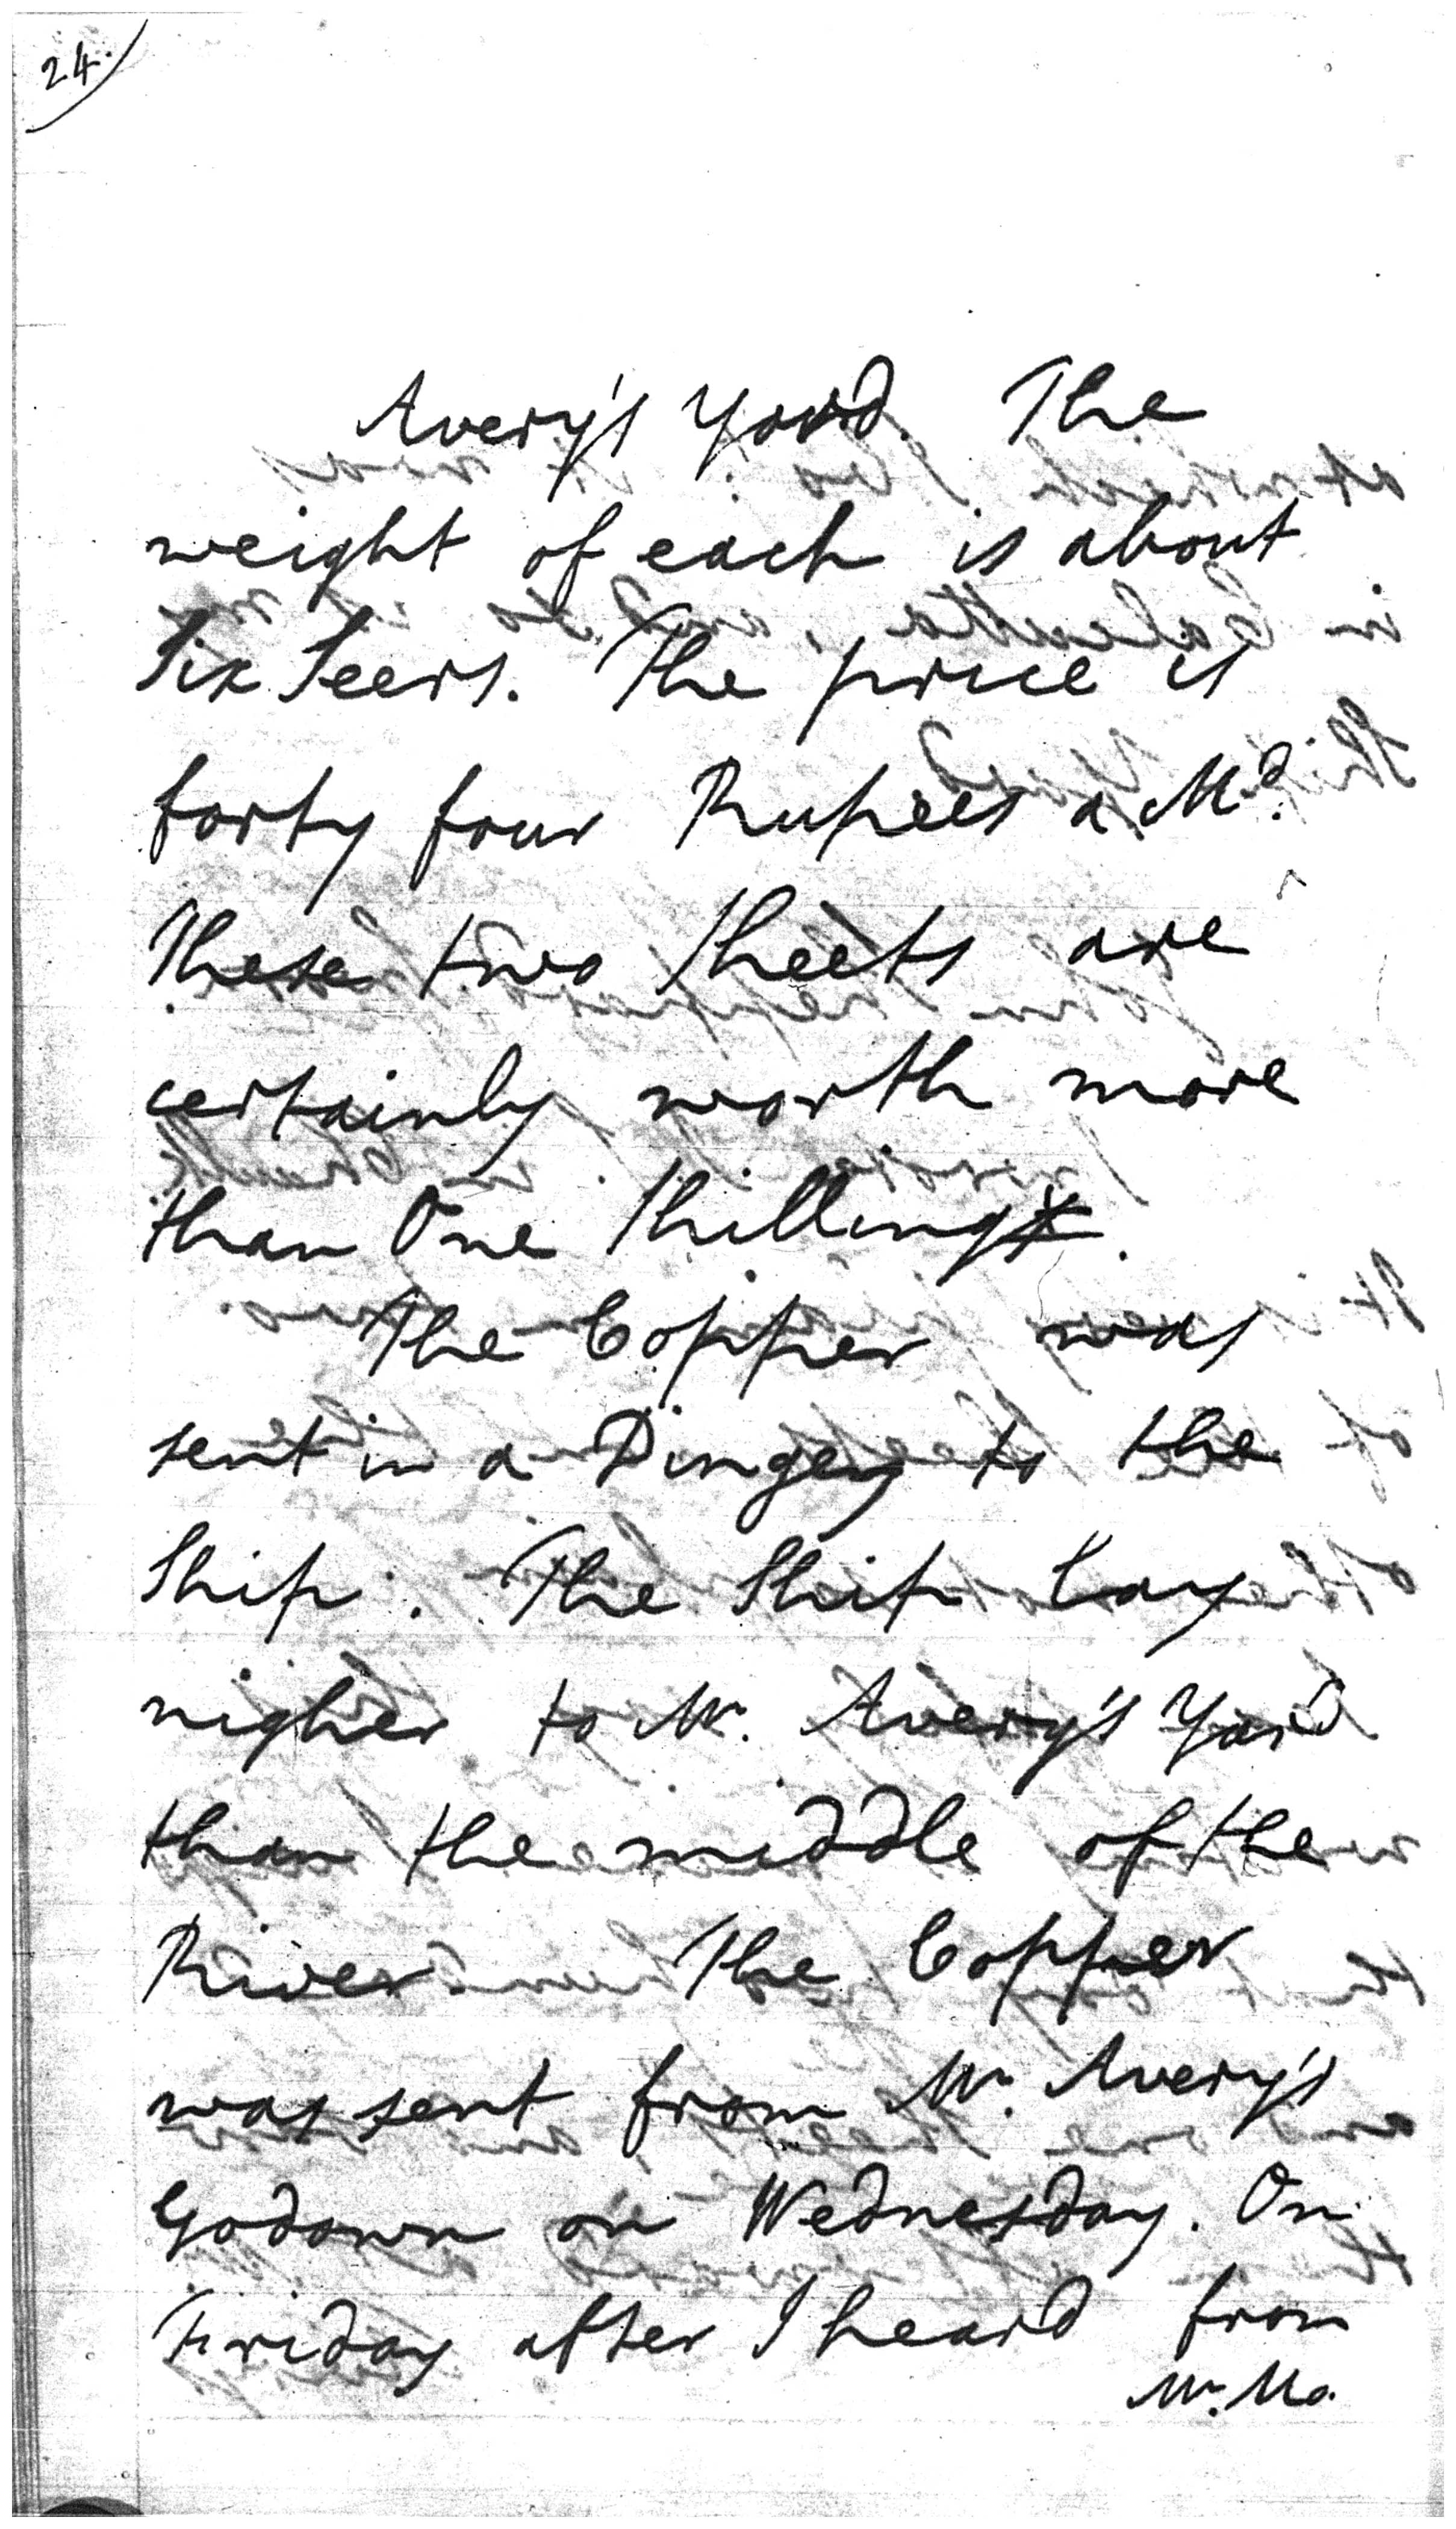 24.
Avery's Yard. The
weight of each is about
Six Seers. The price is
forty four Rupees a Md.
These two Sheets are
certainly worth more
than One Shilling.
The Copper was
sent in a Dingey to the
Ship. The Ship lay
nigher to Mr. Avery's Yard
than the middle of the
River. The Copper
was sent from Mr. Avery's
Godown on Wednesday. On
Friday after I heard from
Mr. Ma.